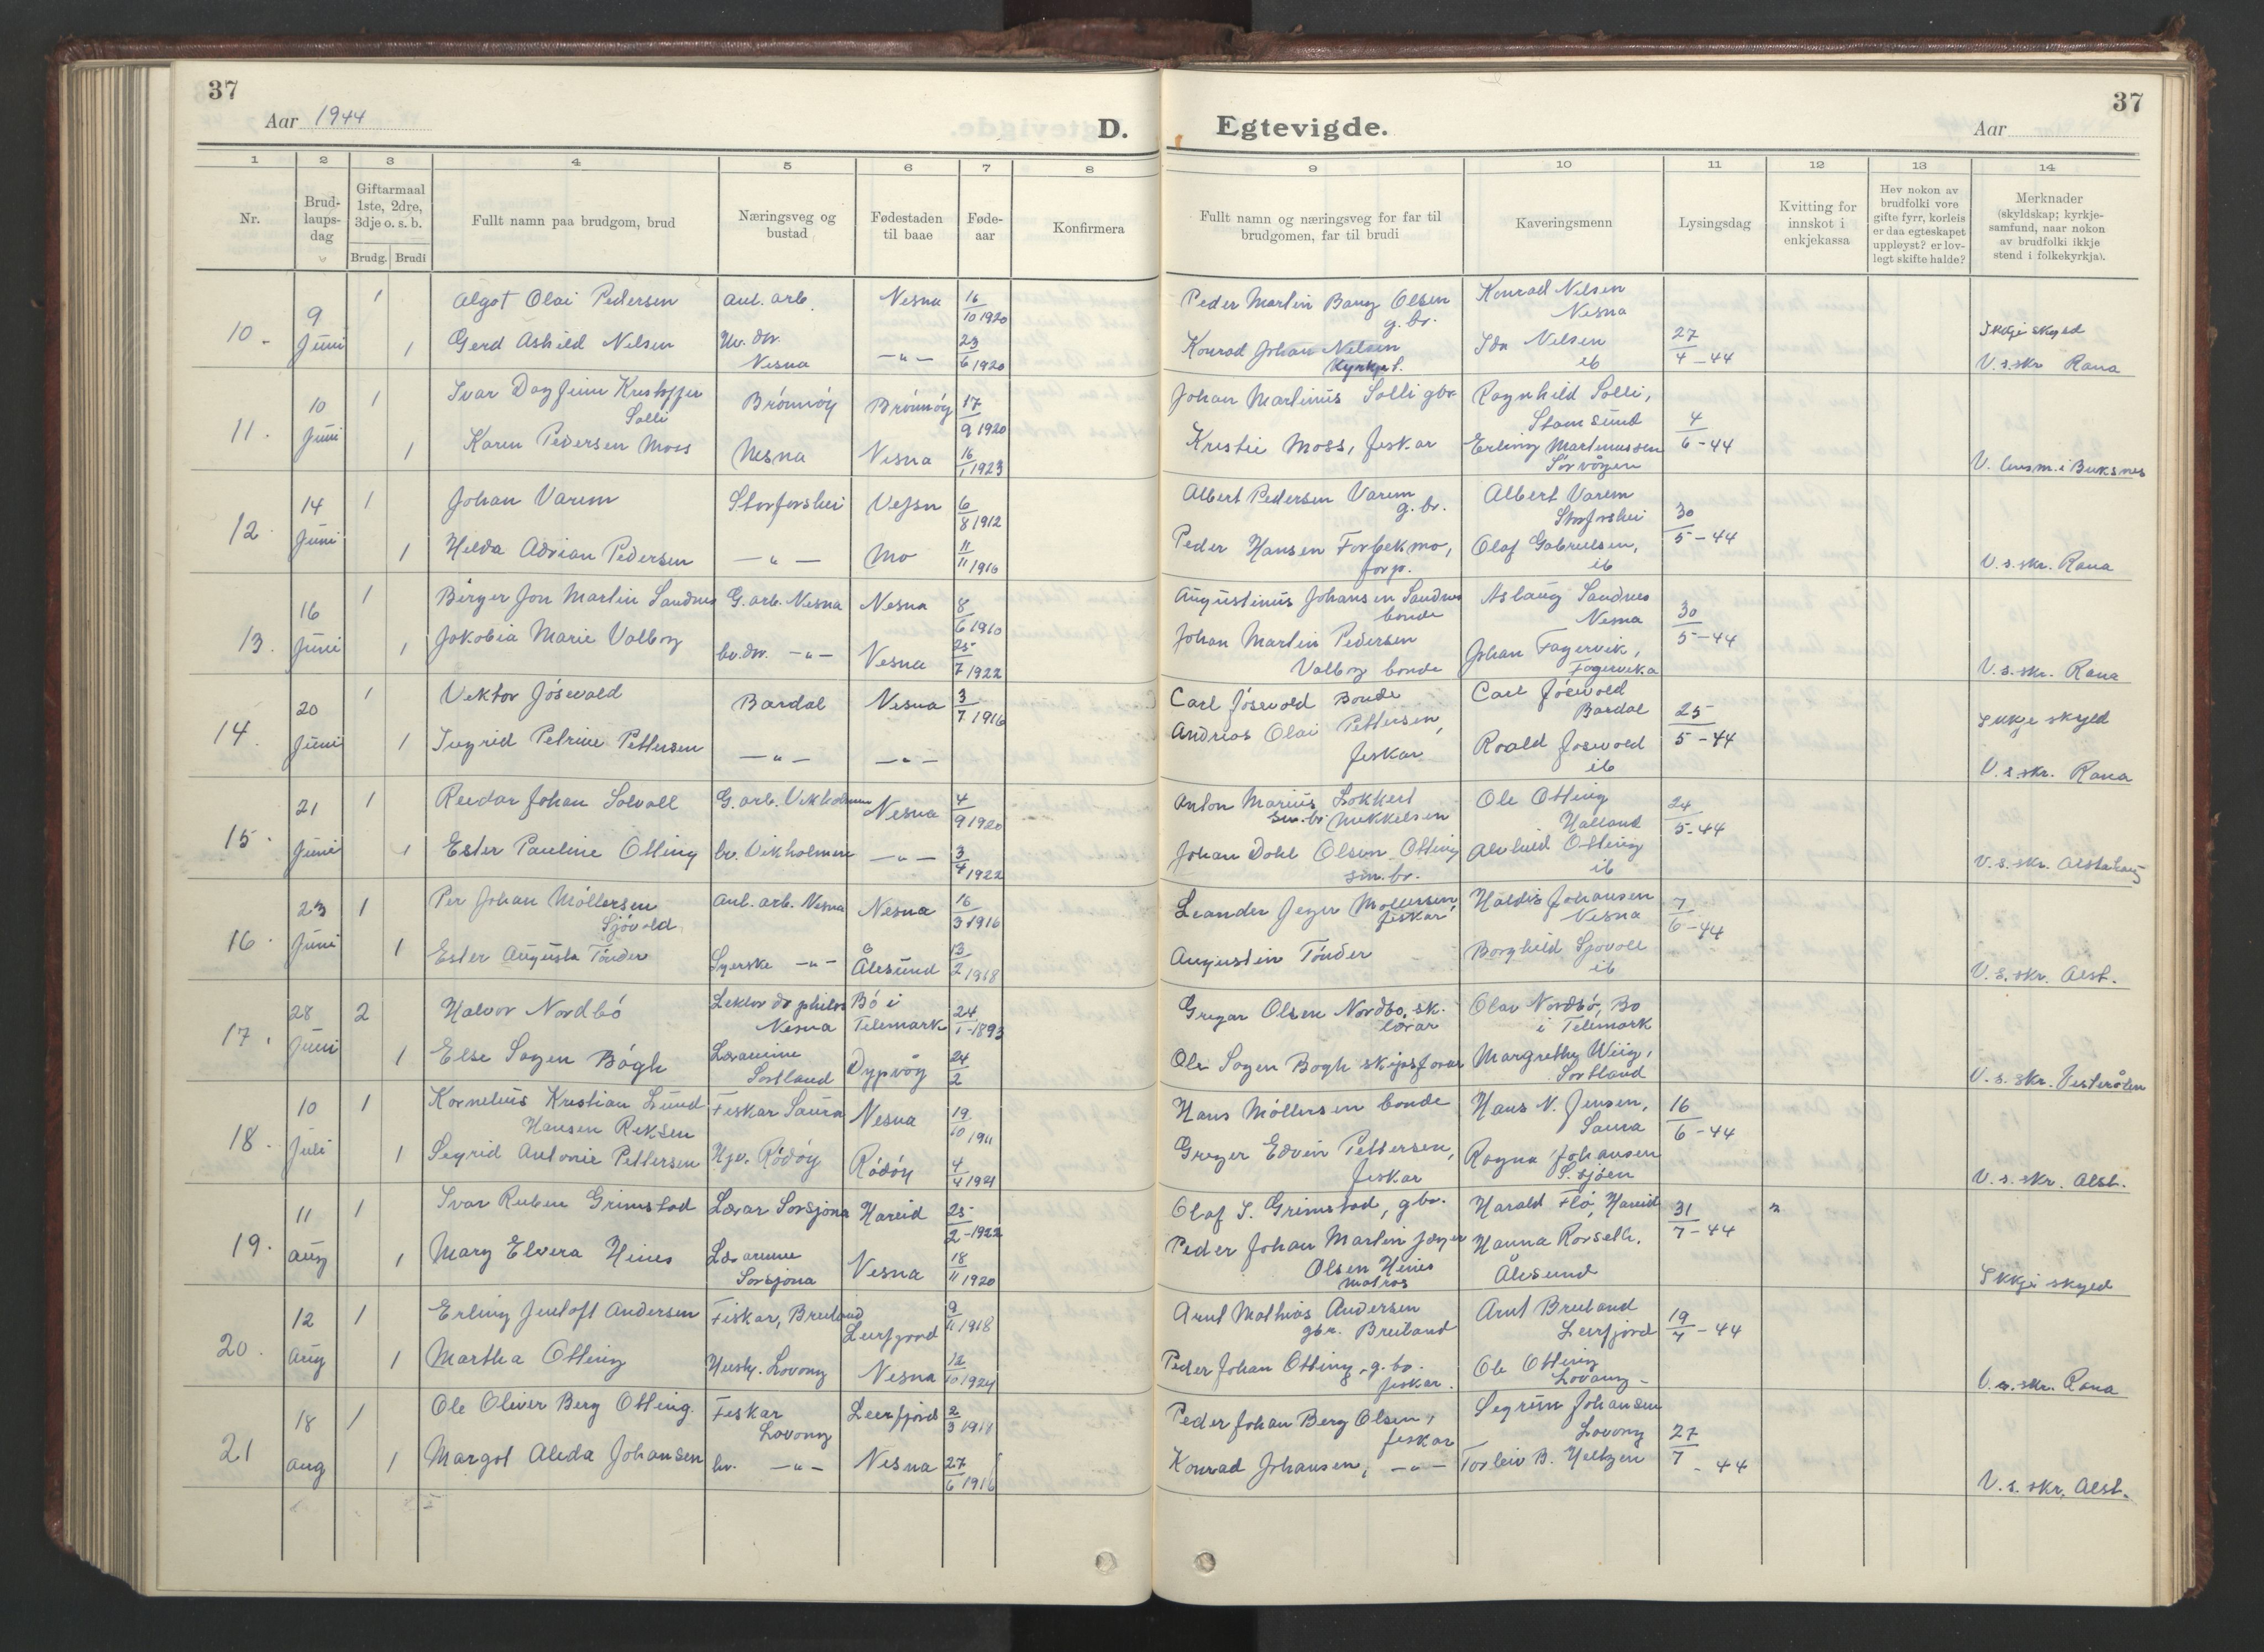 37
Aar 1944
D.
Egtevigde.
Aar
37
1 2 3 4 5 6 7 8 9 10 11 12 13 14
Nr.
Brud-
laups-
dag
Giftarmaal
1ste, 2dre,
3dje o. s. b.
Brudg. Brudi
Fullt namn paa brudgom, brud
Næringsveg og
bustad
Fødestaden
til baae
Føde-
aar
Konfirmera
Fullt namn og næringsveg for far til
brudgomen, far til brudi
Kaveringsmenn
Lysingsdag
Kvitting for
innskot i
enkjekassa
Hev nokon av
brudfolki vore
gifte fyrr, korleis
er daa egteskapet
uppløyst? er lov-
legt skifte halde?
Merknader
(skyldskap; kyrkje-
samfund, naar nokon
av brudfolki ikkje
stend i folkekyrkja).
10. 9 Juni
1 Algot Olai Pedersen Anl. arb. Nesna 16/10 1920 Peder Martin Bang Olsen g. br. Konrad Nilsen Nesna
1 Gerd Ashild Nelsen Nesna -"- 23/6 1920 Konrad Johan Nelsen Ida Nelsen ib 27/4-44 Ikkje skyld V. s. skr Rana
11. 10 Juni
1 Ivar Dagfinn Kristoffer Solli Brónnóy Brónnóy 17/9 1920 Johan Martinus Solli gbr Ragnhild Solli, Stamsund
1 Karen Pedersen Moss Nesna Nesna 16/1 1923 Moss, fiskar Erling Martinussen Sørvågen 4/6-44 V. lensm. i Buksnes
12. 14 Juni
1 Johan Varem Storforshei Vefsn 6/8 1912 Albert Pedersen Varem g. br. Albert Varem Storforshei
1 Hilda Adrian Pedersen -"- Mo 11/11 1916 Peder Hansen Forbekmo, forp. Olaf Gabrielsen, ib 30/5-44 V. s. skr. Rana
13. 16 Juni
1 Birger Jon Martin Sandnes G. arb. Nesna Nesna 8/6 1910 Augustinus Johansen Sandnes bonde Aslaug Sandnes Nesna
1 Jakobia Marie Valberg -"- Nesna 25/7 1922 Johan Martin Pedersen Valberg bonde Johan Fagervik, Fagervika 30/5-44 V. s. skr. Rana
14. 20 Juni
1 Viktor Jósevold Bardal Nesna 3/7 1916 Carl Jósevold Bonde Carl Jósevold Bardal
1 Ingrid Petrine Pettersen -"- -"- Andreas Olai Pettersen, fiskar Roald Josevold ib 25/5-44 Ikkje skyld V. s. skr. Rana
15. 21 Juni
1 Reidar Johan Solvoll G. arb. Vikholmen Nesna 4/9 1920 Anton Marius Lokkert sm. br. Mikkelsen Ole Otting Halland
1 Ester Pauline Otting hv. Vikholmen -"- 3/4 1922 Johan Dohl Olsen Otting sm. br. Alvhild Otting ib 24/5-44 V. s. skr. Alstahaug
16. 23 Juni
1 Per Johan Möllersen Sjóvold Anl. arb. Nesna Nesna 16/3 1916 Leander Jeger Mollersen, fiskar Haldis Johansen Nesna
1 Ester Augusta Tónder Syerske -"- Ålesund 13/2 1918 Augustin Tónder Borghild Sjovoll ib 7/6-44 V. s. skr. Alst.
17. 28 Juni
2 Halvor Nordbó Lektor dr philos Nesna Bó i Telemark 24/1-1893 Gregar Olsen Nordbo, sk. lærar Olav Nordbó, Bo i Telemark
1 Else Sagen Bógh Lærarinne Sortland Dypvåg 24/2 Ole Sagen Bogh skipsforar Margrethe Wiig, Sortland V. s. skr. Vesterålen
18. 10 Juli
1 Kornelius Kristian Lund Hansen Reksen Fiskar Saura Nesna 19/10 1911 Hans Möllersen bonde Hans N. Jensen, Saura
1 Sigrid Antonie Pettersen Hjv. Ródóy Ródóy 4/4 1921 Greger Edvin Pettersen, fiskar Ragna Johansen S. sjöen 16/6-44 V. s. skr. Alst.
19. 11 Aug
1 Ivar Ruben Grimstad Lærar Sorsjona Hareid 25/2-1922 Olaf I. Grimstad, gbr. Harald Fló, Hareid
1 Mary Elvera Hines Lærarinne Sorsjona Nesna 18/11 1920 Peder Johan Martin Jæger Olsen Hines matros Hanna Rorseth, Ålesund 31/7-44 Ikkje skyld
20. 12 Aug
1 Erling Jentoft Andersen Fiskar, Breiland Leirfjord 9/11 1918 Arnt Mathias Andersen gbr. Breiland Arnt Breiland Leirfjord
1 Martha Otting Hush. Lovong Nesna 12/10 1924 Peder Johan Otting, g. br. fiskar. Ole Otting Lovong 19/7-44 V. s. skr. Rana
21 18 Aug
1 Ole Oliver Berg Otting Fiskar Lovong Leirfjord Peder Johan Berg Olsen, fiskar Sigrun Johansen Lovong
1 Margot Alida Johansen hv. -"- Nesna 27/6 1916 Konrad Johansen, -"- Torleiv B. Heltzen 27/7-44 V. s. skr. Alst.